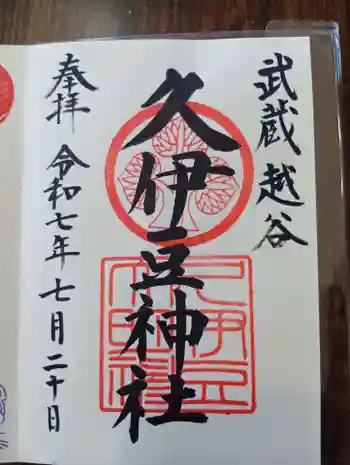 武蔵越谷
久伊豆神社
奉拝
令和七年七月二十日